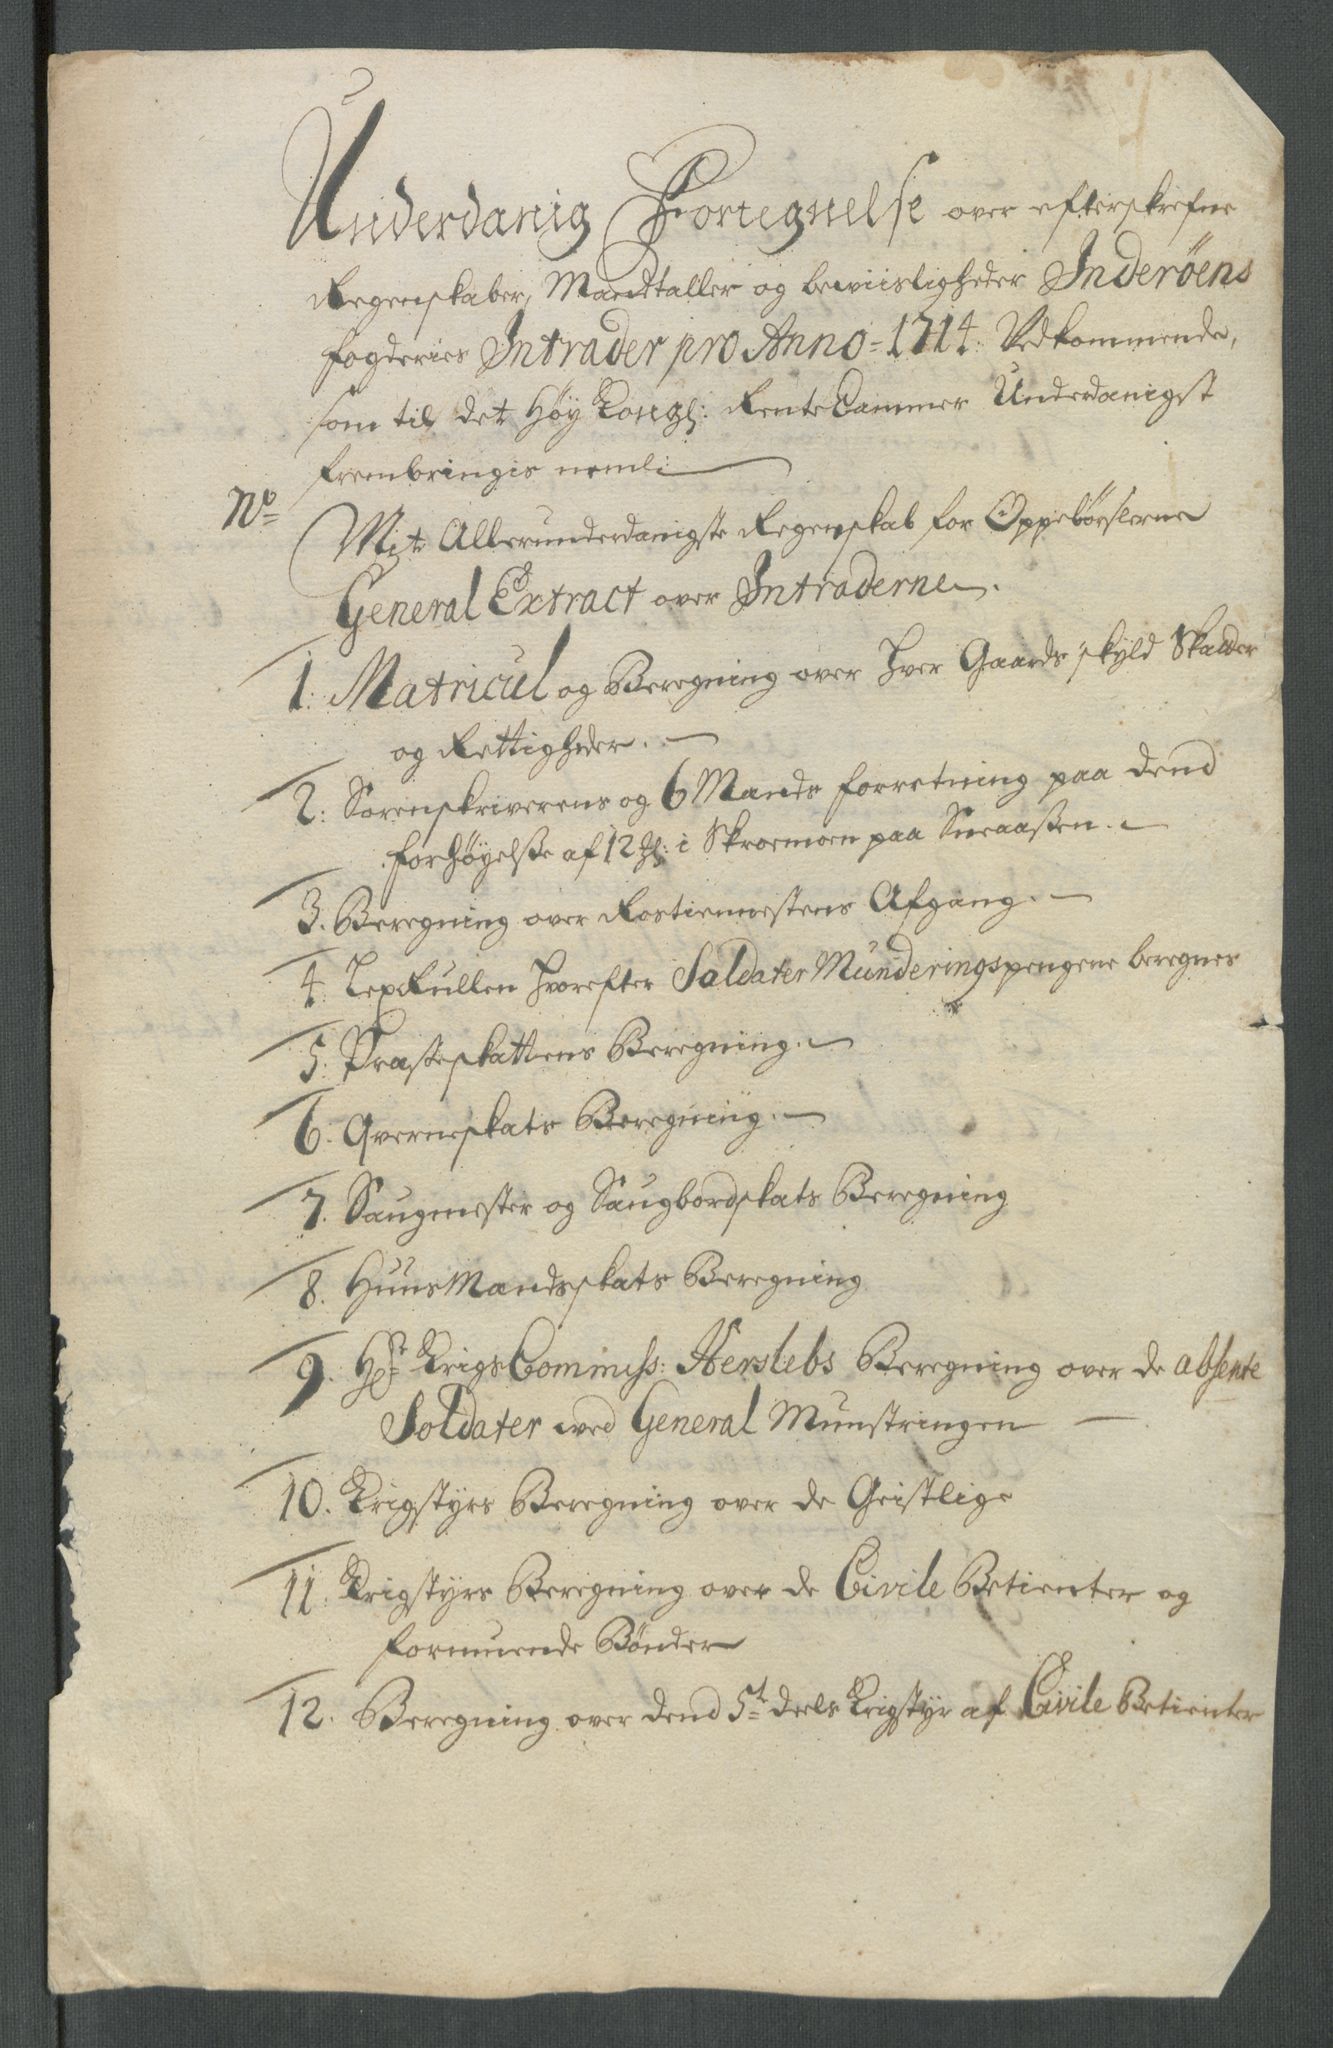 Underdanig Fortegnelse over efterskrefne
Regenskaber, Mandtaller og beviisligheder Inderöens
fogderies Intrader pro Anno = 1714. Vedkommende,
som til det Höy Kongl: Rente Cammer Underdanigst
frembringis neml:
No
Mit Allerunderdanigste Regenskab for Oppebörslerne
General Extract over Intraderne.
1. Matricul og Beregning over hver Gaards skyld Skatter
og Rettigheder.
2: Sorenskriverens og 6 Mands forretning paa dend
forhöyelsse af 12 i Skroemoen paa Sneaassen.
3. Beregning over Rostienestens Afgang.
4. Hvorefter Soldater Munderings pengene beregnes
5. Præsteskattens Beregning.
6. Qverneskats Beregning.
7. Saugmester og Saugbordskats Beregning
8. HuusMandsskats Beregning
9. Hr Krigs Commiss: Herslebs Beregning over de absente
Soldater wed General Munstringen
10. Krigstyrs Beregning over de Geistlige
11. Krigstyrs Beregning over de Civile Betienter og
formuende Bönder
12. Beregning over dend 5t deels Krigstyr af Civile Betienter